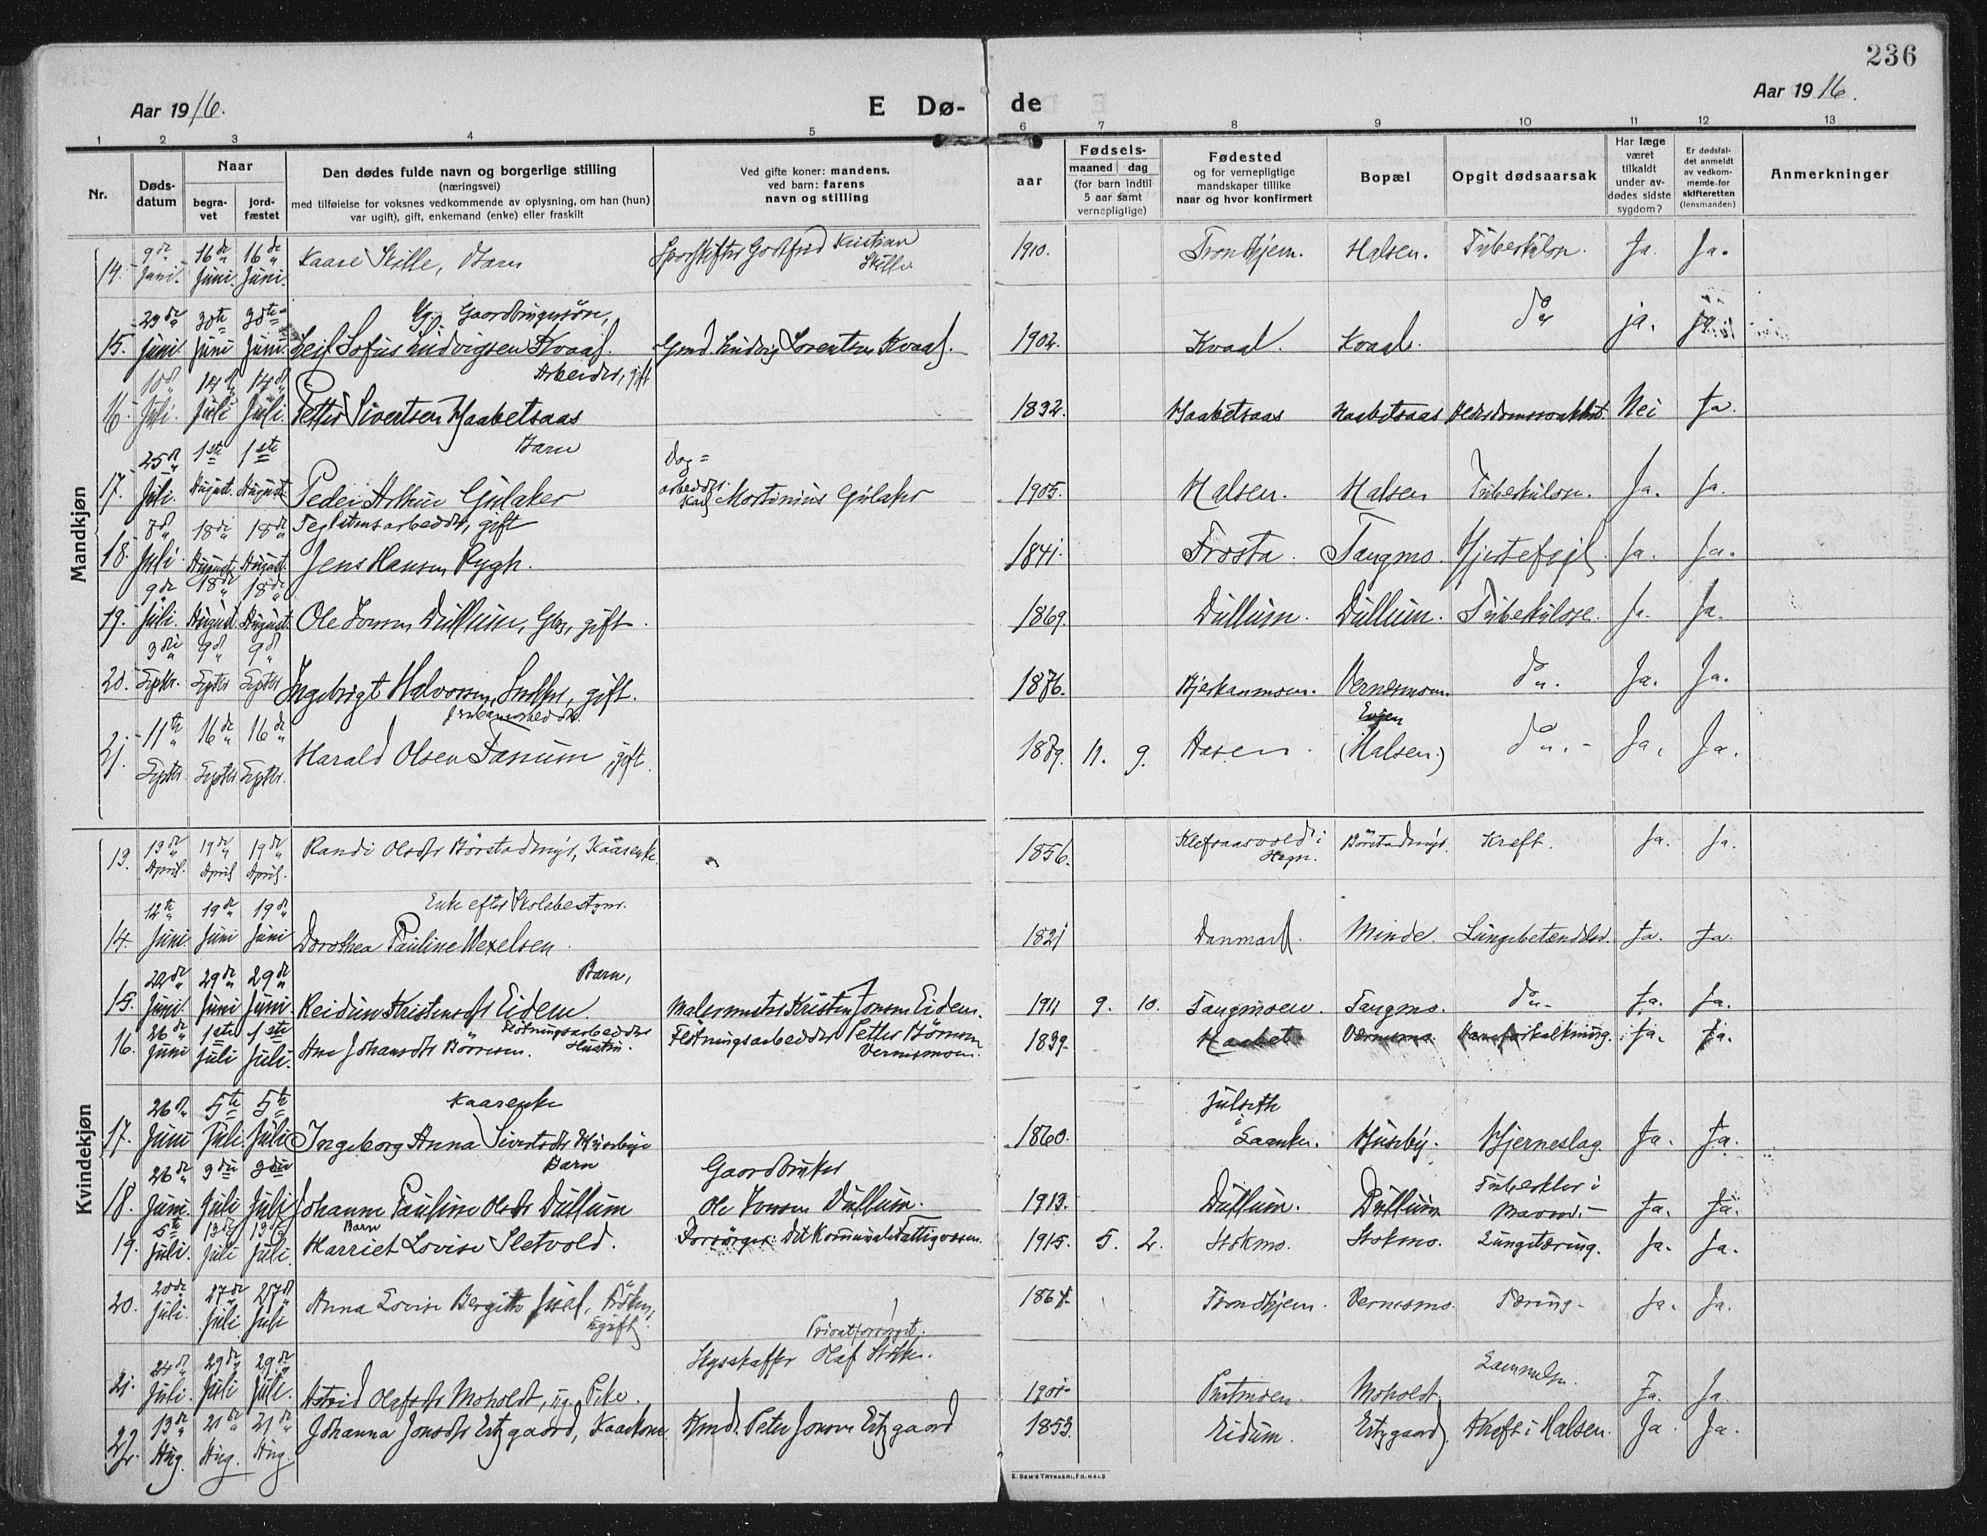 236
Aar 1916.
E Dø- de
Aar 1916.
1 2 3 4 5 6 7 8 9 10 11 12 13
Nr.
Døds-
datum
Naar
begra-
vet
jord-
fæstet
Den dødes fulde navn og borgerlige stilling
(næringsvei)
med tilføielse for voksnes vedkommende av oplysning, om han (hun)
var ugift), gift, enkemand (enke) eller fraskilt
Ved gifte koner: mandens,
ved barn: farens
navn og stilling
aar
Fødsels-
maaned dag
(for barn indtil
5 aar samt
vernepligtige)
Fødested
og for vernepligtige
mandskaper tillike
naar og hvor konfirmert
Bopæl
Opgit dødsaarsak
Har læge
været
tilkaldt
under av-
dødes sidste
sygdom?
Er dødsfal-
det anmeldt
av vedkom-
mende for
skifteretten
(lensmanden)
Anmerkninger
Mandkjøn
14. 9de Juni. 16de Juni. 16de Juni. Kaare Skille, Barn Godtfred Kristian Skille 1910. Trondhjem. Halsen. Tuberkulose. Ja. Ja.
15. 23de Juni. 30te Juni 30te Juni Ug. Gaardbrugersøn, Leif Sofus Ludvigsen Kvaal. Gmd. Ludvig Lorentsen Kvaal. 1902. Kvaal. Kvaal. Do ja. ja.
16. 10d Juli. 14d Juli 14d Juli. Arbeider, gift Petter Sivertsen Haabetsaas 1832. Haabetsaas Haabetsaas Alderdomssvakhet Nei Ja.
17. 25d Juli 1ste August. 1ste August. Barn Peder Arthur Gulaker Dag= arbeider Karl Martinius Gulaker 1905. Halsen. Halsen Tuberkulose. Ja. Ja.
18. 7d Juli 18de August 18de August. Teglstensarbeider, gift Jens Hansen Rygh. 1841. Frosta. Tangmo. Hjertefejl. Ja. Ja.
19. 9de Juli. 18de August. 18de August. Ole Jonsen Dullum, Gbr, gift. 1869. Dullum. Dullum. Tuberkulose. Ja. Ja.
20. 3die Septbr. 9d Septbr 9d Septbr Ingebrigt Halvorsen, gift. 1876. Bjerkanmoen. Vernesmoen. Do. Ja. Ja.
21. 11te Septbr. 16de Septbr. 16de Septbr. Jernbanearbeider. Harald Olsen Fanum, gift. 1889. 11. 9. Aasen. Evjen (Halsen.) Do. Ja. Ja.
Kvindekjøn
13. 13de April. 19de April 19de April. Randi Olsdtr Børstadmyr, Kaarenke. 1856. Klefsaasvold i Hegra. Børstadmyr. Kreft. Ja. Ja.
14. 12te Juni 19de Juni 19de Juni Enke efter Skolebestyrer. Dorothea Pauline Wexelsen. 1821 Danmark. Minde. Lungebetændelse. Ja. Ja.
15. 22de Juni. 29de Juni 29de Juni. Barn, Reidun Kristensdtr Eidem. Malermester Kristen Jonsen Eidem. 1911 9. 10. Tangmoen. Tangmo. Do. Ja. Ja.
16. 26de Juni 1ste Juli 1ste Juli. Fløtningsarbeider Hustru. Ane Johansdtr Børresen. Fløtningsarbeider Petter Børresen Vernesmoen. 1839. Haabet Vernesmo. Ja. Ja.
17. 26d Juni 5te Juli. 5te Juli Kaarenke Ingeborg Anna Sivertsdtr Husebye 1860. Julseth i Laanke. Husby. Hjerneslag. Ja. Ja.
18. 26de Juni. 3die Juli 3die Juli Barn Johanne Pauline Olsdtr Dullum Gaardbruker Ole Jonsen Dullum. 1913. Dullum. Dullum Tuberkler i Maven. Ja. Ja.
19. 5te Juli. 13de Juli 13de Juli. Barn Harriet Lovise Sletvold. Forsørger: Det Kommunale Fattigvæsen. 1915. 5. 2. Stokmo. Stokmo. Lungetæring. Ja. Ja.
20. 20de Juli. 27de Juli 27d Juli Anna Lovise Bergitte Juel, Frøken, ugift. 1867. Trondhjem. Vernesmo. Tæring. Ja. Ja.
21. 24d Juli. 29de Juli 29de Juli. Astrid Olafsdtr Moholdt, ug. Pike. Privatforsørget. Skysskaffer Olaf 1901. Prestmoen. Moholdt. Ja. Ja.
22. 13de Aug. 21de Aug. 21de Aug. Johanna Jonsdtr Ertzgaard, Kaarkone. Kmd. Peter Jonsen Ertzgaard 1853. Eidum. Ertzgaard. Kreft i Halsen. Ja. Ja.
E. SEM'S TRYKKERI, FR.HALD